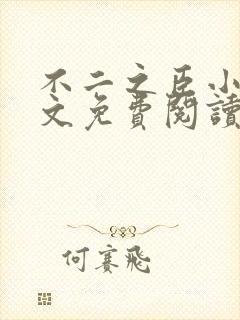 不二之臣小
文免費閱讀
何賽飛